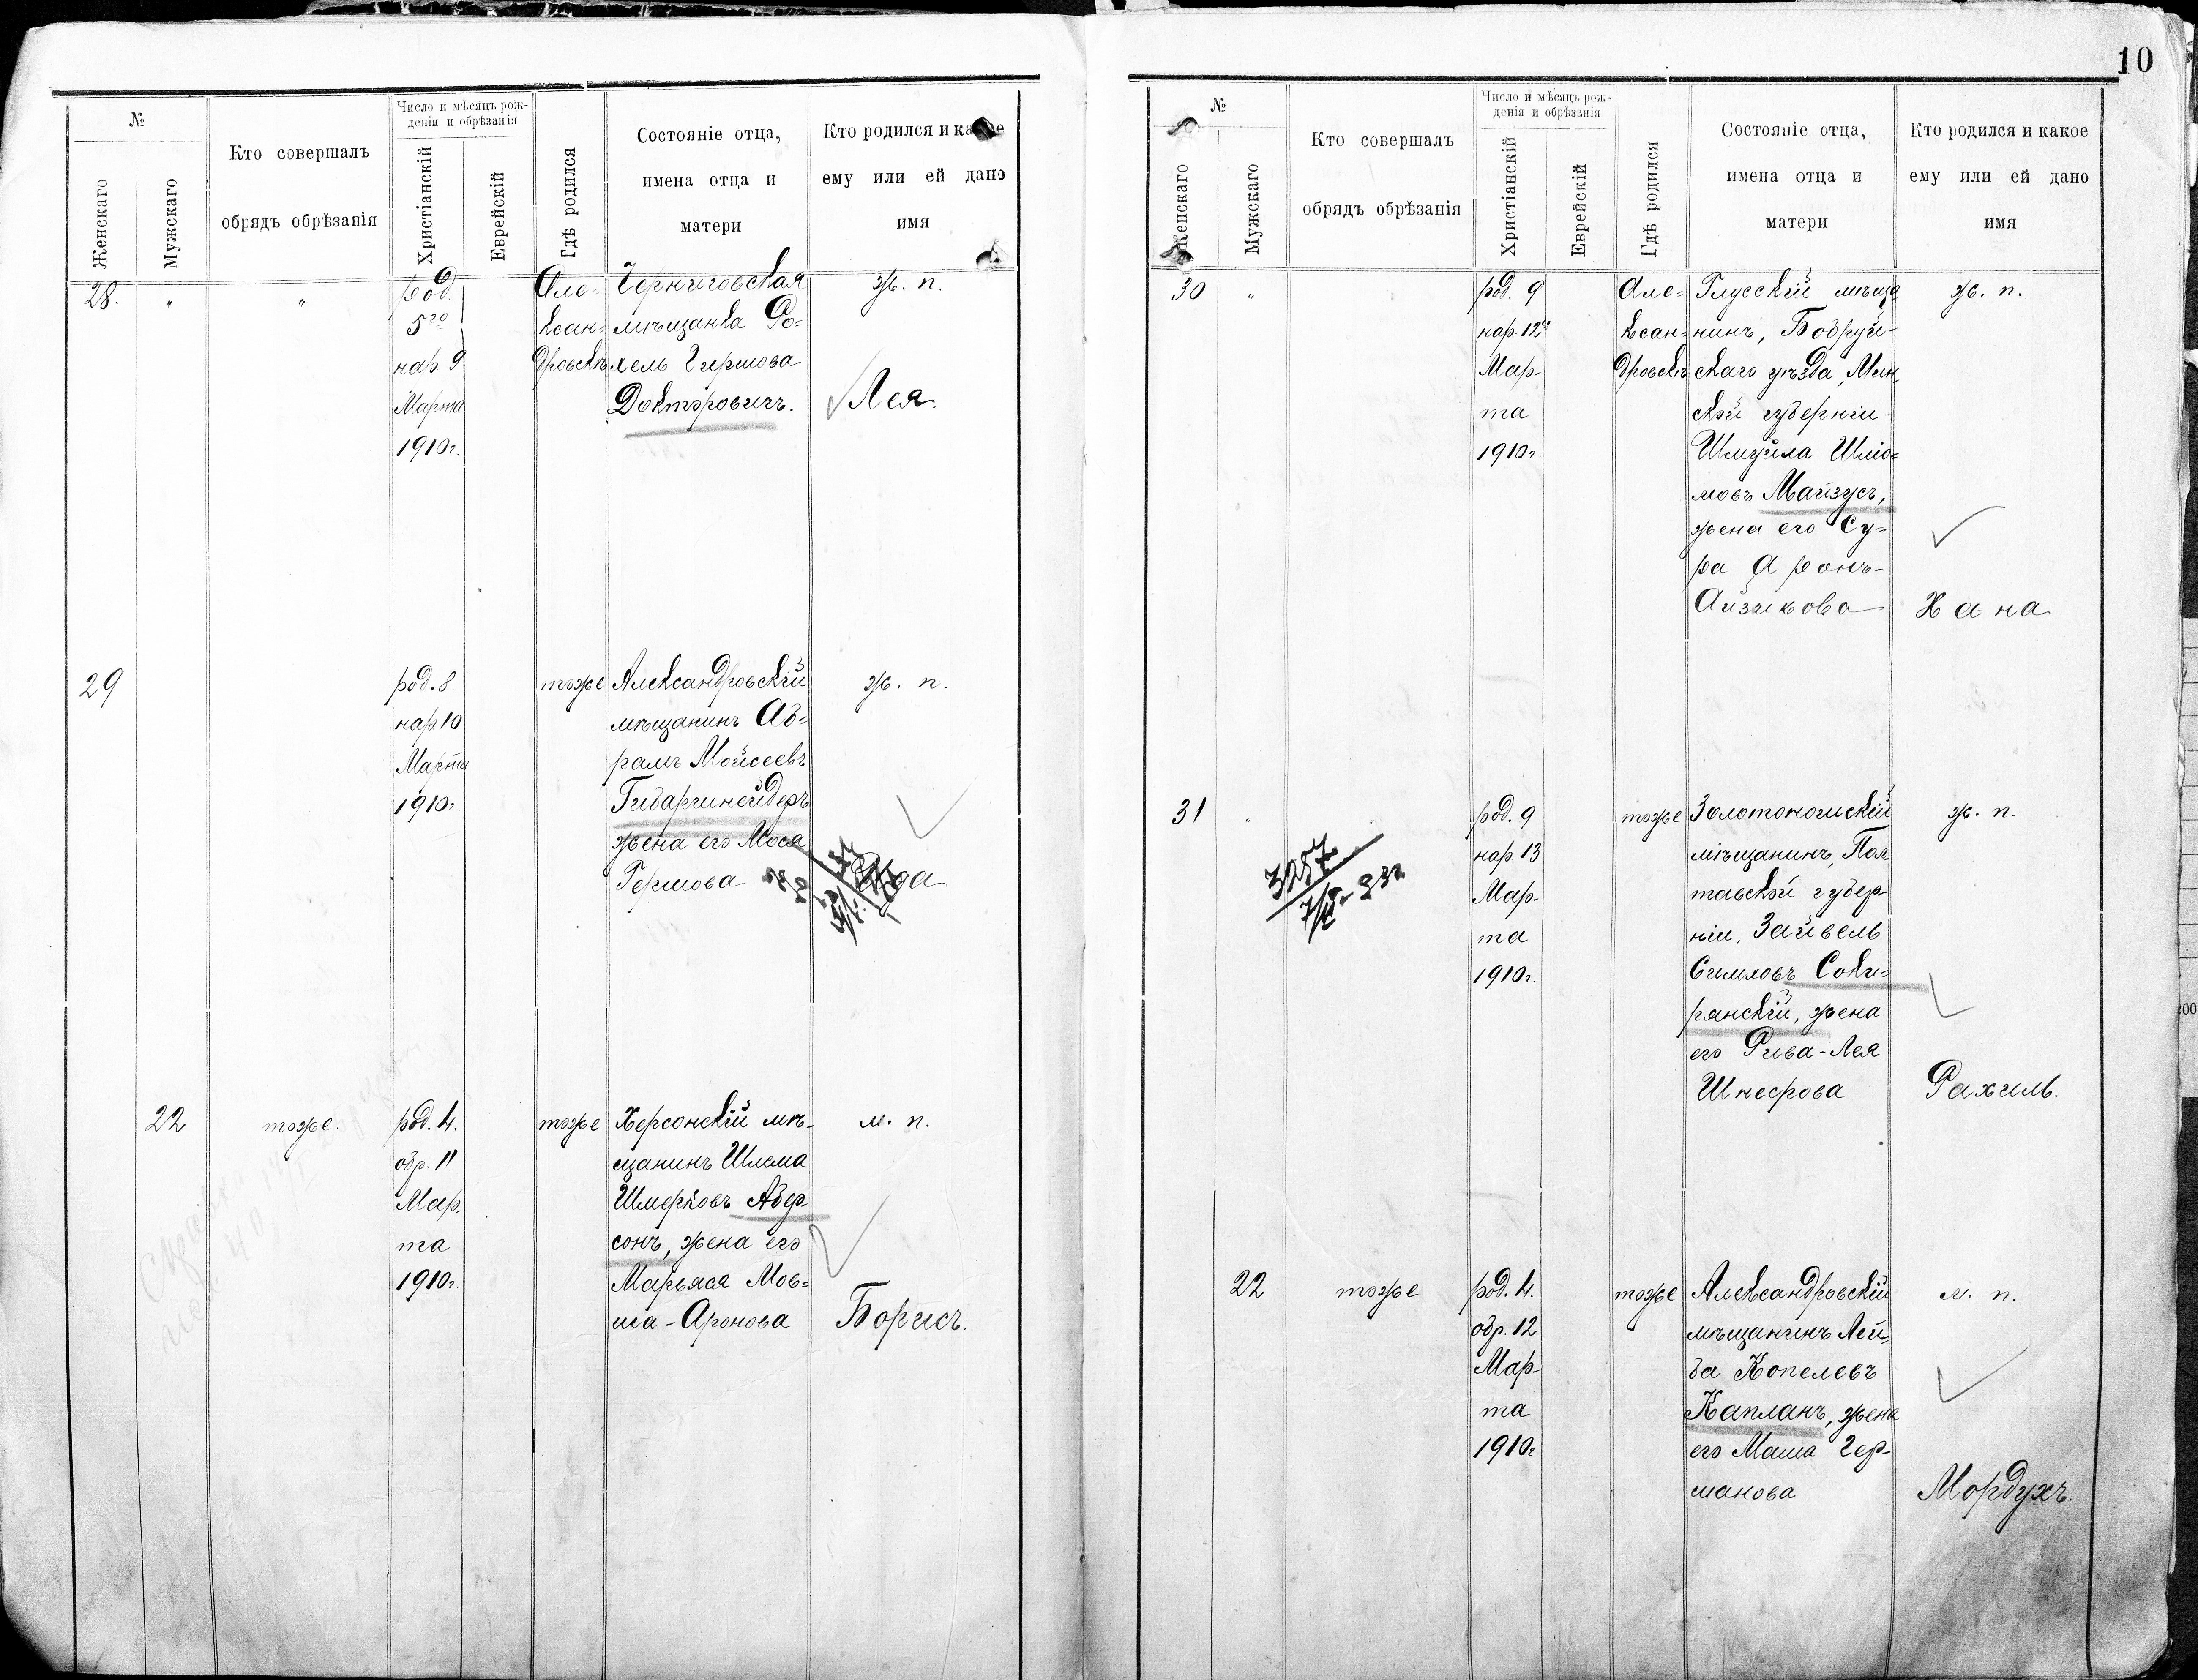 10
№
Женскаго
Мужскаго
Кто совершалъ
обрядъ обрѣзанія
Число и мѣсяцъ рож-
денія и обрѣзанія
Христіанскій
Еврейскій
Гдѣ родился
Состояніе отца,
имена отца и
матери
Кто родился и какое
ему или ей дано
имя
28.
"
"
род.
5го
нар 9
Марта
1910г.
Але-
ксан-
дровскъ
Черниговская
мѣщанка Ро-
хель Гиршова
Докторовичъ.
ж. п.
Лея.
29
род. 8
нар 10
Марта
1910г.
тоже
Александровскій
мѣщанинъ Аб-
рамъ Мойсеевъ
жена его Мося
Гершова
ж. п.
22
тоже.
род. 4.
обр. 11
Мар-
та
1910г.
тоже
Херсонскій мѣ-
щанинъ Шлема
Шмерковъ Абер-
сонъ, жена его
Марьяса Мов-
ша-Аронова
м. п.
Борисъ.
№
Женскаго
Мужскаго
Кто совершалъ
обрядъ обрѣзанія
Число и мѣсяцъ рож-
денія и обрѣзанія
Христіанскій
Еврейскій
Гдѣ родился
Состояніе отца,
имена отца и
матери
Кто родился и какое
ему или ей дано
имя
30
"
род. 9
нар. 12го
Мар-
та
1910г
Але-
ксан-
дровскъ
Глусскій мѣща
нинъ, Бобруй-
скаго уѣзда, Мин-
ской губерніи-
Шмуйла Шлiо-
мовъ Майзусъ,
жена его Су-
ра Аронъ-
Айзикова
ж. п.
Хана
31
"
3257
род. 9
нар. 13
Мар-
та
1910г.
тоже
Золотоношскій
мѣщанинъ, Пол-
тавской губер
ніи, Зайвель
Симховъ Соки-
рянскій, жена
его Рива-Лея
Шнеерова
ж. п.
Рахиль.
22
тоже
род. 4.
обр. 12
Мар-
та
1910г
тоже
Александровскій
мѣщанинъ Лей-
ба Копелевъ
Капланъ, жена
его Маша Гер-
манова
м. п.
Мордухъ.